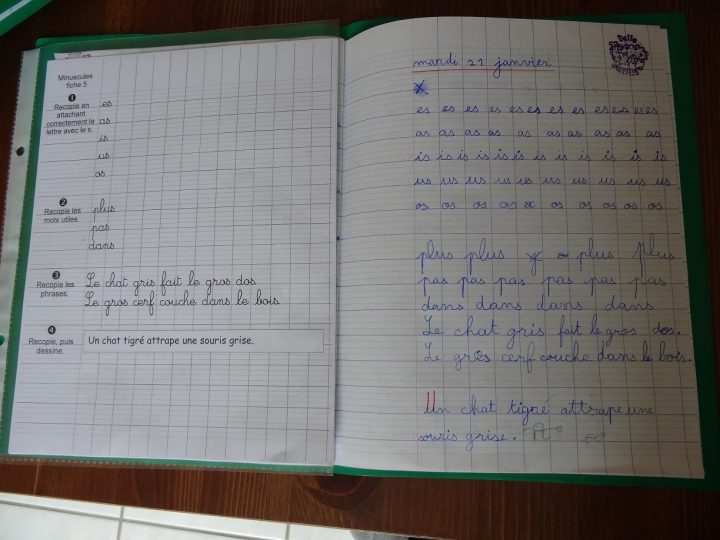 Minuscules
fiche 5
1
Recopie en
attachant
correctement la
lettre avec le s.
es
as
is
us
os
2
Recopie les
mots utiles.
plus
pas
dans
3
Recopie les
phrases.
Le chat gris fait le gros dos.
Le gros cerf couche dans le bois.
4
Recopie, puis
dessine.
Un chat tigré attrape une souris grise.
Belle
mardi 21 janvier
es es es es es es es es es es es es
as as as as as as as as as as
is is is is is is is is is is is is
us us us us us us us us us us us
os os os os os os os os os os
plus plus plus plus
pas pas pas pas pas pas
dans dans dans dans
Le chat gris fait le gros dos.
Le gros cerf couche dans le bois.
Un chat tigré attrape une
souris grise.